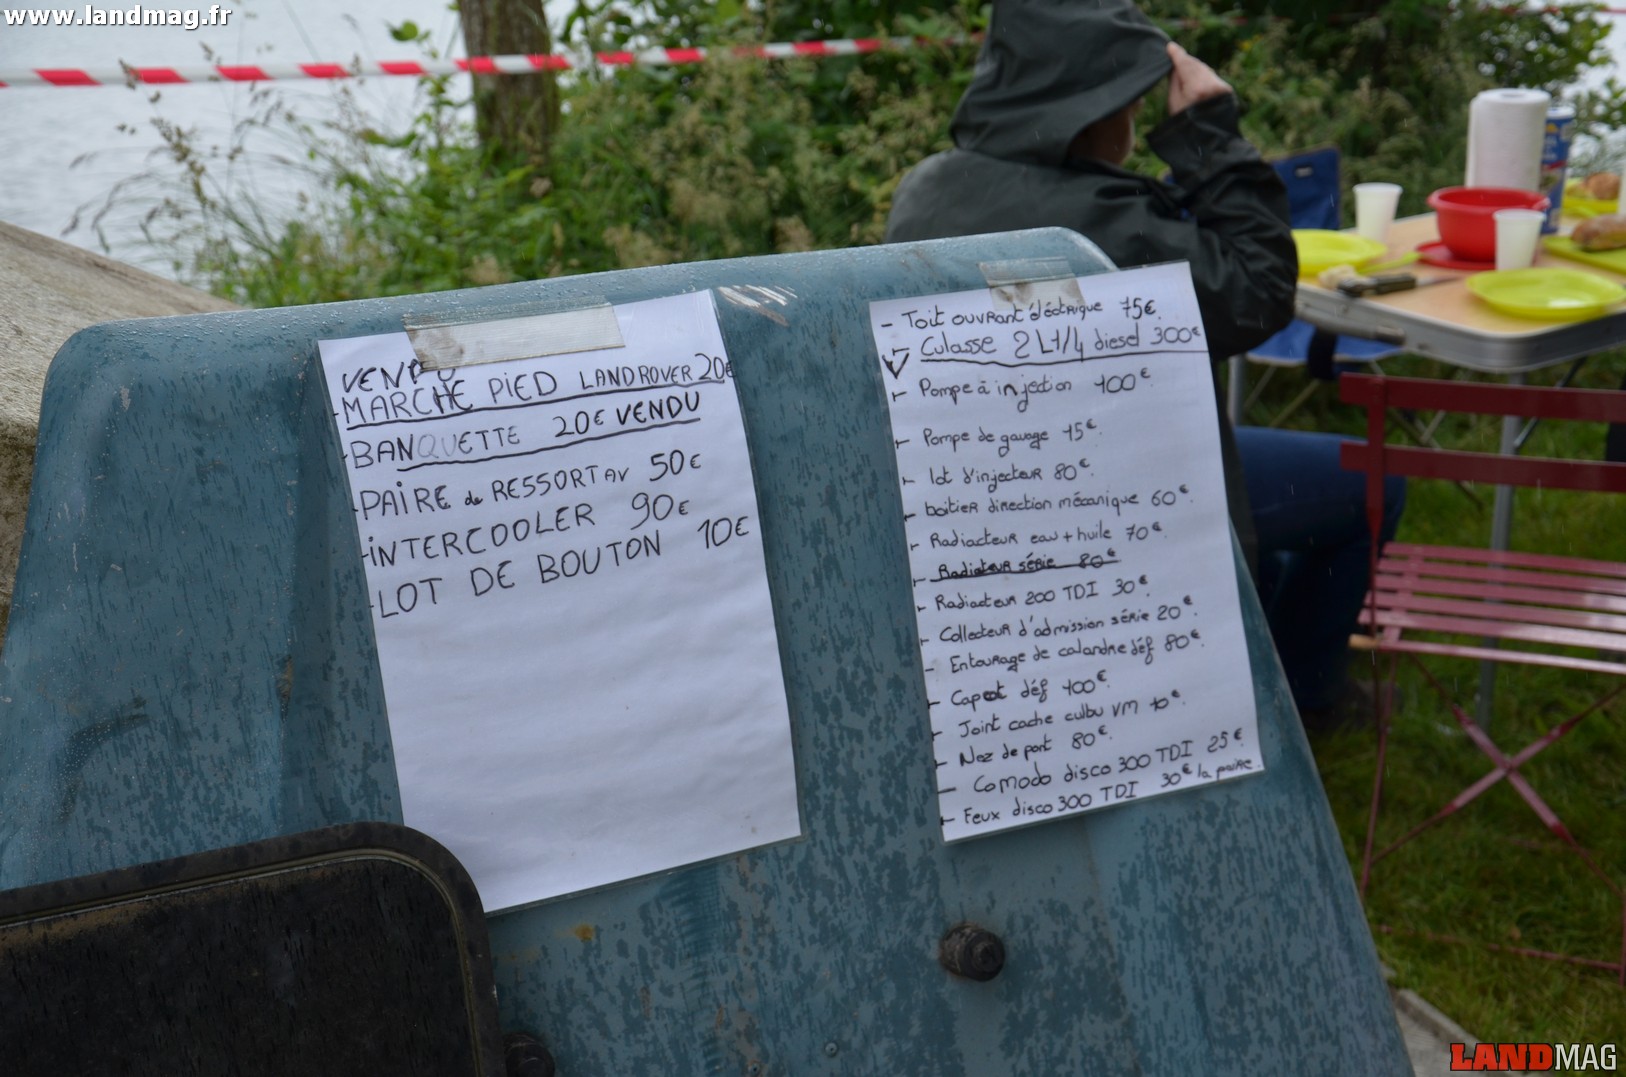 www.landmag.fr
VENDU
- MARCHE PIED LANDROVER 20€
- BANQUETTE 20€ VENDU
- PAIRE de RESSORT AV 50€
- INTERCOOLER 90€
- LOT DE BOUTON 10€
- Toit ouvrant éléctrique 75€.
Culasse 2L1/4 diesel 300€
- Pompe à injection 100€.
- Pompe de gavage 15€.
- lot d'injecteur 80€.
- boitier direction mécanique 60€.
- Radiacteur eau + huile 70€.
- Radiateur série 80€
- Radiacteur 200 TDI 30€.
- Collecteur d'admission série 20€.
- Entourage de calandre déf 80€.
- Capot déf 100€.
- Joint cache culbu VM 10€.
- Nez de pont 80€.
- Comodo disco 300 TDI 25€.
- Feux disco 300 TDI 30€ la paire.
LANDMAG